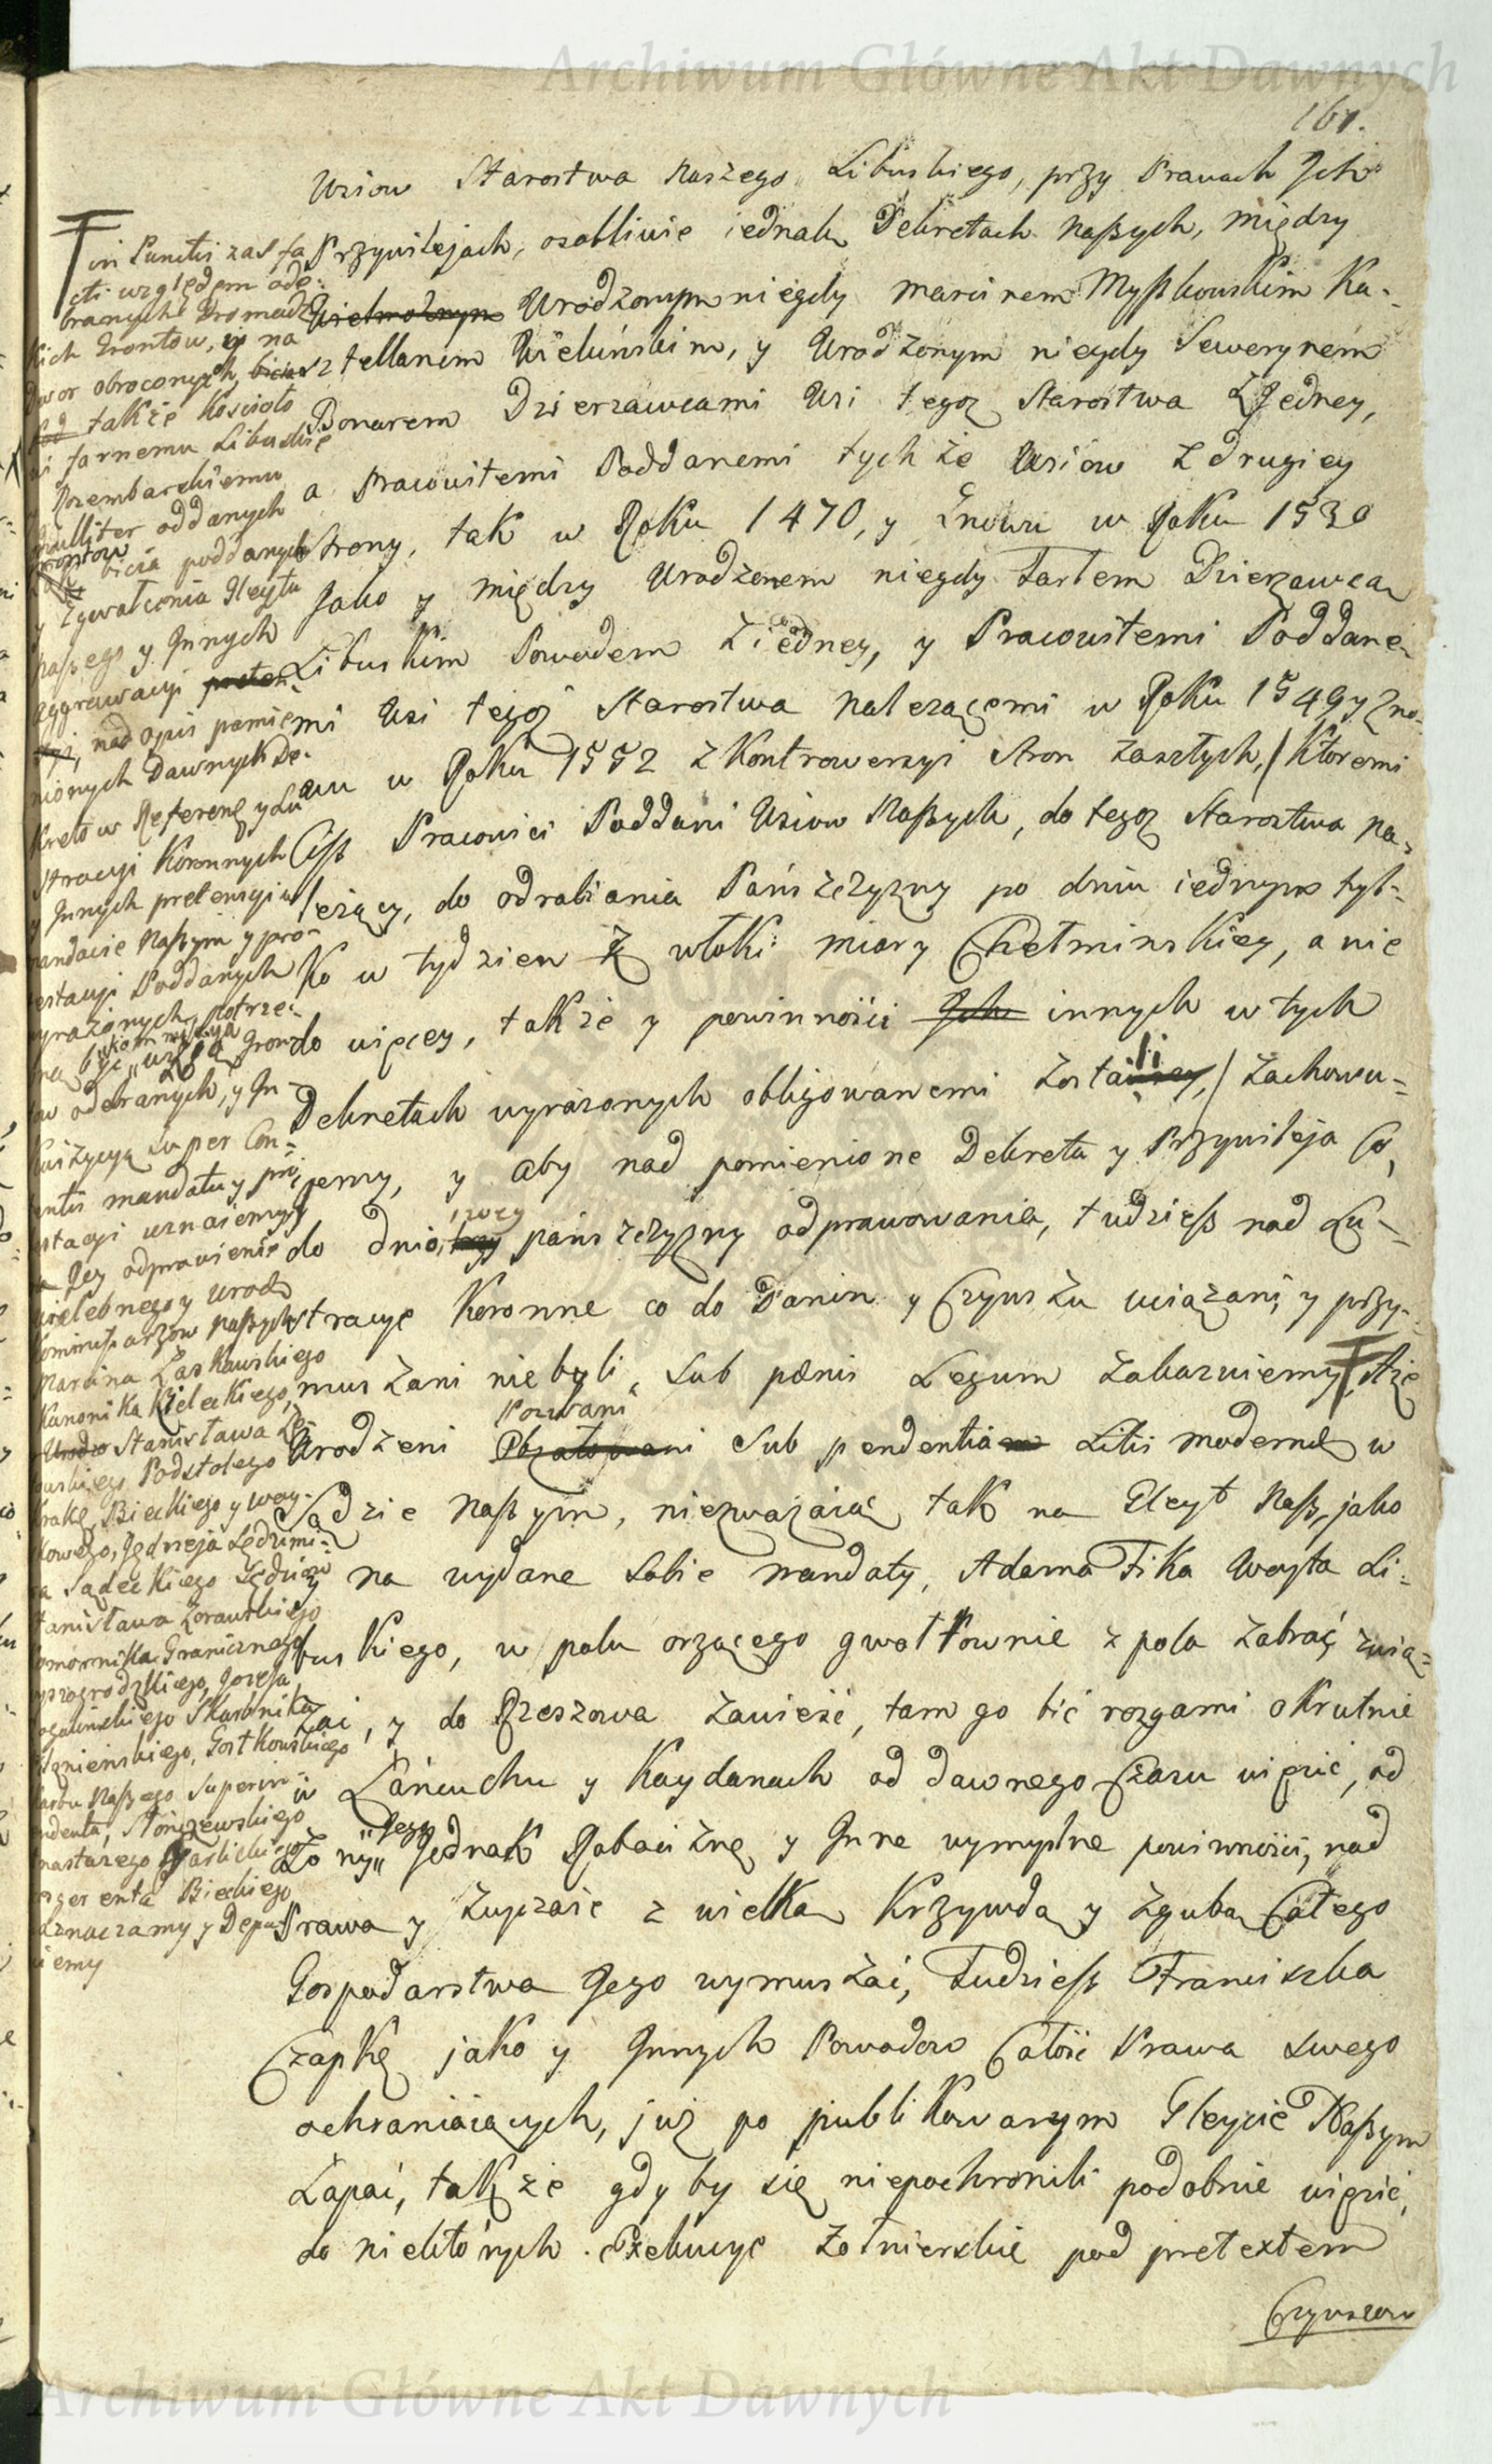 Archiwum Główne Akt Dawnych
161.
Wsiow Starostwa Naszego Libuskiego, przy Prawach Ich
Przywilejach, osobliwie iednak Dekretach Naszych, między
Wielmożnym Urodzonym niegdy Marcinem Myszkowskim Ka-
sztellanem Wieluńskim, y Urodzonym niegdy Sewerynem
Bonarem Dzierzawcami Wsi tegoż Starostwa z Jedney,
a Pracowitemi Poddanemi tychże Wsiow z drugiey
Strony, tak w Roku 1470, y znowu w Roku 1530
Jako y między Urodzonem niegdy Tarłem Dzierzawcą
Libuskim Powodem z iedney, y Pracowitemi Poddane-
mi Wsi tegoż Starostwa należącemi w Roku 1549 y zno-
wu w Roku 1552 z Kontrowersyi Stron zaszłych, / Ktoremi
Ciż Pracowici Poddani Wsiow Naszych, do tegoż Starostwa na-
leżący, do odrabiania Pańszczyzny po dniu iednym tyl-
ko w tydzien z włoki miary Chełminskiey, a nie
do więcey, także y powinności Ich innych w tych
Dekretach wyrażonych obligowanemi zostali, / Zachowu-
jemy, y aby nad pomienione Dekreta y Przywileja Co
do dnio, wey pańszczyzny odprawowania, tudzież nad Lu-
stracye Koronne co do Danin y Czynszu uciążani, y przy-
muszani niebyli, sub pœnis Legum zakazuiemy, Aże
Urodzeni Pozwani Obżałowani sub pendentia Litis modernæ w
Sądzie Naszym, niezważaiąc tak na Gleyt Nasz, jako
y na wydane sobie mandaty, Adama Fika Woyta Li-
buskiego, w polu orzącego gwałtownie z pola zabrać, zwią-
zać, y do Rzeszowa zawieźć, tam go bić rozgami okrutnie
w Łańcuchu y Kaydanach od dawnego Czasu więzić, od
Żony „Jego„ Jednak Robociznę y Inne wymyslne powinności, nad
Prawa y Zwyczaie z wielką Krzywdą y zgubą Całego
Gospodarstwa Jego wymuszać, Tudzież Franciszka
Czapkę jako y Innych Powodow Całość Prawa swego
ochraniaiących, już po publikowanym Gleycie Naszym
Łapać, także gdyby się niepochronili podobnie więzić,
do niektórych Exekucye Żołnierskie pod pretextem
Czynszow
in Punctis zaś fa
cti względem ode-
branych Gromadz
kich Grontow, y na
Dwor obroconych, bicia
kod także Kościoło
wi farnemu Libuskie
y Rozembarskiemu
nulliter oddanych
Grontow
bicia poddanych
y zgwałcenia Gleytu
Naszego y Innych
aggrawacyi preten-
syi, nad opis pomie-
nionych Dawnych De-
kretow Referen. y Lu-
stracyi Koronnych
y Innych pretensyi w
mandacie Naszym y pro-
testacyi Poddanych
wyrażonych, potrze-
bną być „Kommissyą„ względem Gron-
tow odebranych, y In-
kwizycyą super Con-
tentis mandatu y pro-
testacyi uznaiemy, y
na Jey odprawienie
Wielebnego y Urodz
Kommissarzow Naszych
Marcina Łaskawskiego
Kanonika Kieleckiego,
Urodz Stanisława Łę-
towskiego Podstolego
Krakł, Bieckiego y Woy-
kowego, Jędrzeja Lędzimi-
ra Sądeckiego Sędziow
Stanisława Żorawskiego
Komornika Granicznego
Wyszogrodzkiego, Jozefa
Rogalińskiego Skarbnika
Gostkowskiego
Skarbu Naszego Superin-
tendenta,
enta Bieckiego
Oznaczamy y Deputu-
iemy
Archiwum Główne Akt Dawnych